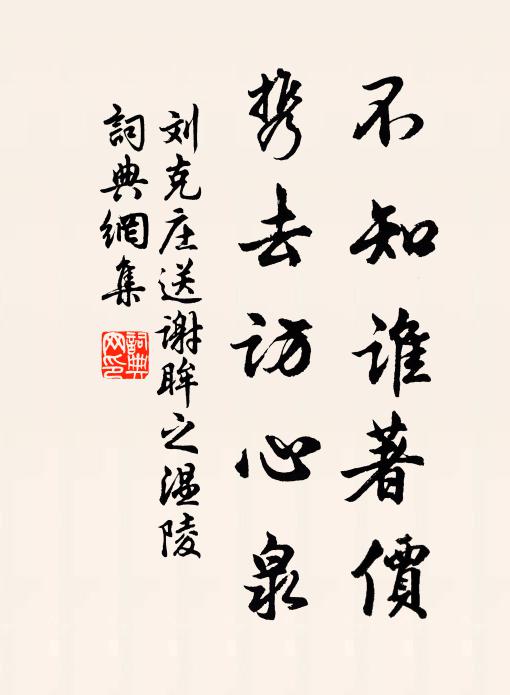 不知谁著價
携去访心泉
刘克庄送谢眸之温陵
詞典網集
詞典网印